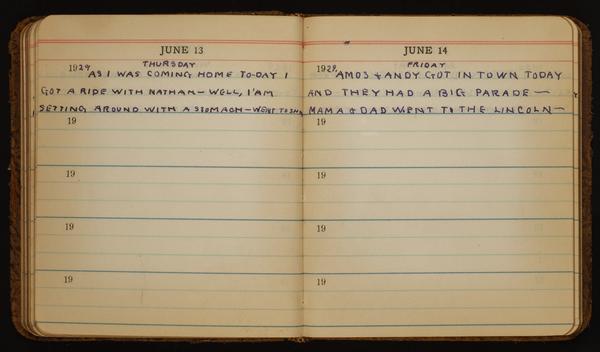 JUNE 13
THURSDAY
1929 AS I WAS COMING HOME TO-DAY I
GOT A RIDE WITH NATHAN — WELL, I'AM
SETTING AROUND WITH A STOMACH — WENT TO
19
19
19
19
JUNE 14
FRIDAY
1929 AMOS & ANDY GOT IN TOWN TODAY
AND THEY HAD A BIG PARADE —
MAMA & DAD WENT TO THE LINCOLN —
19
19
19
19